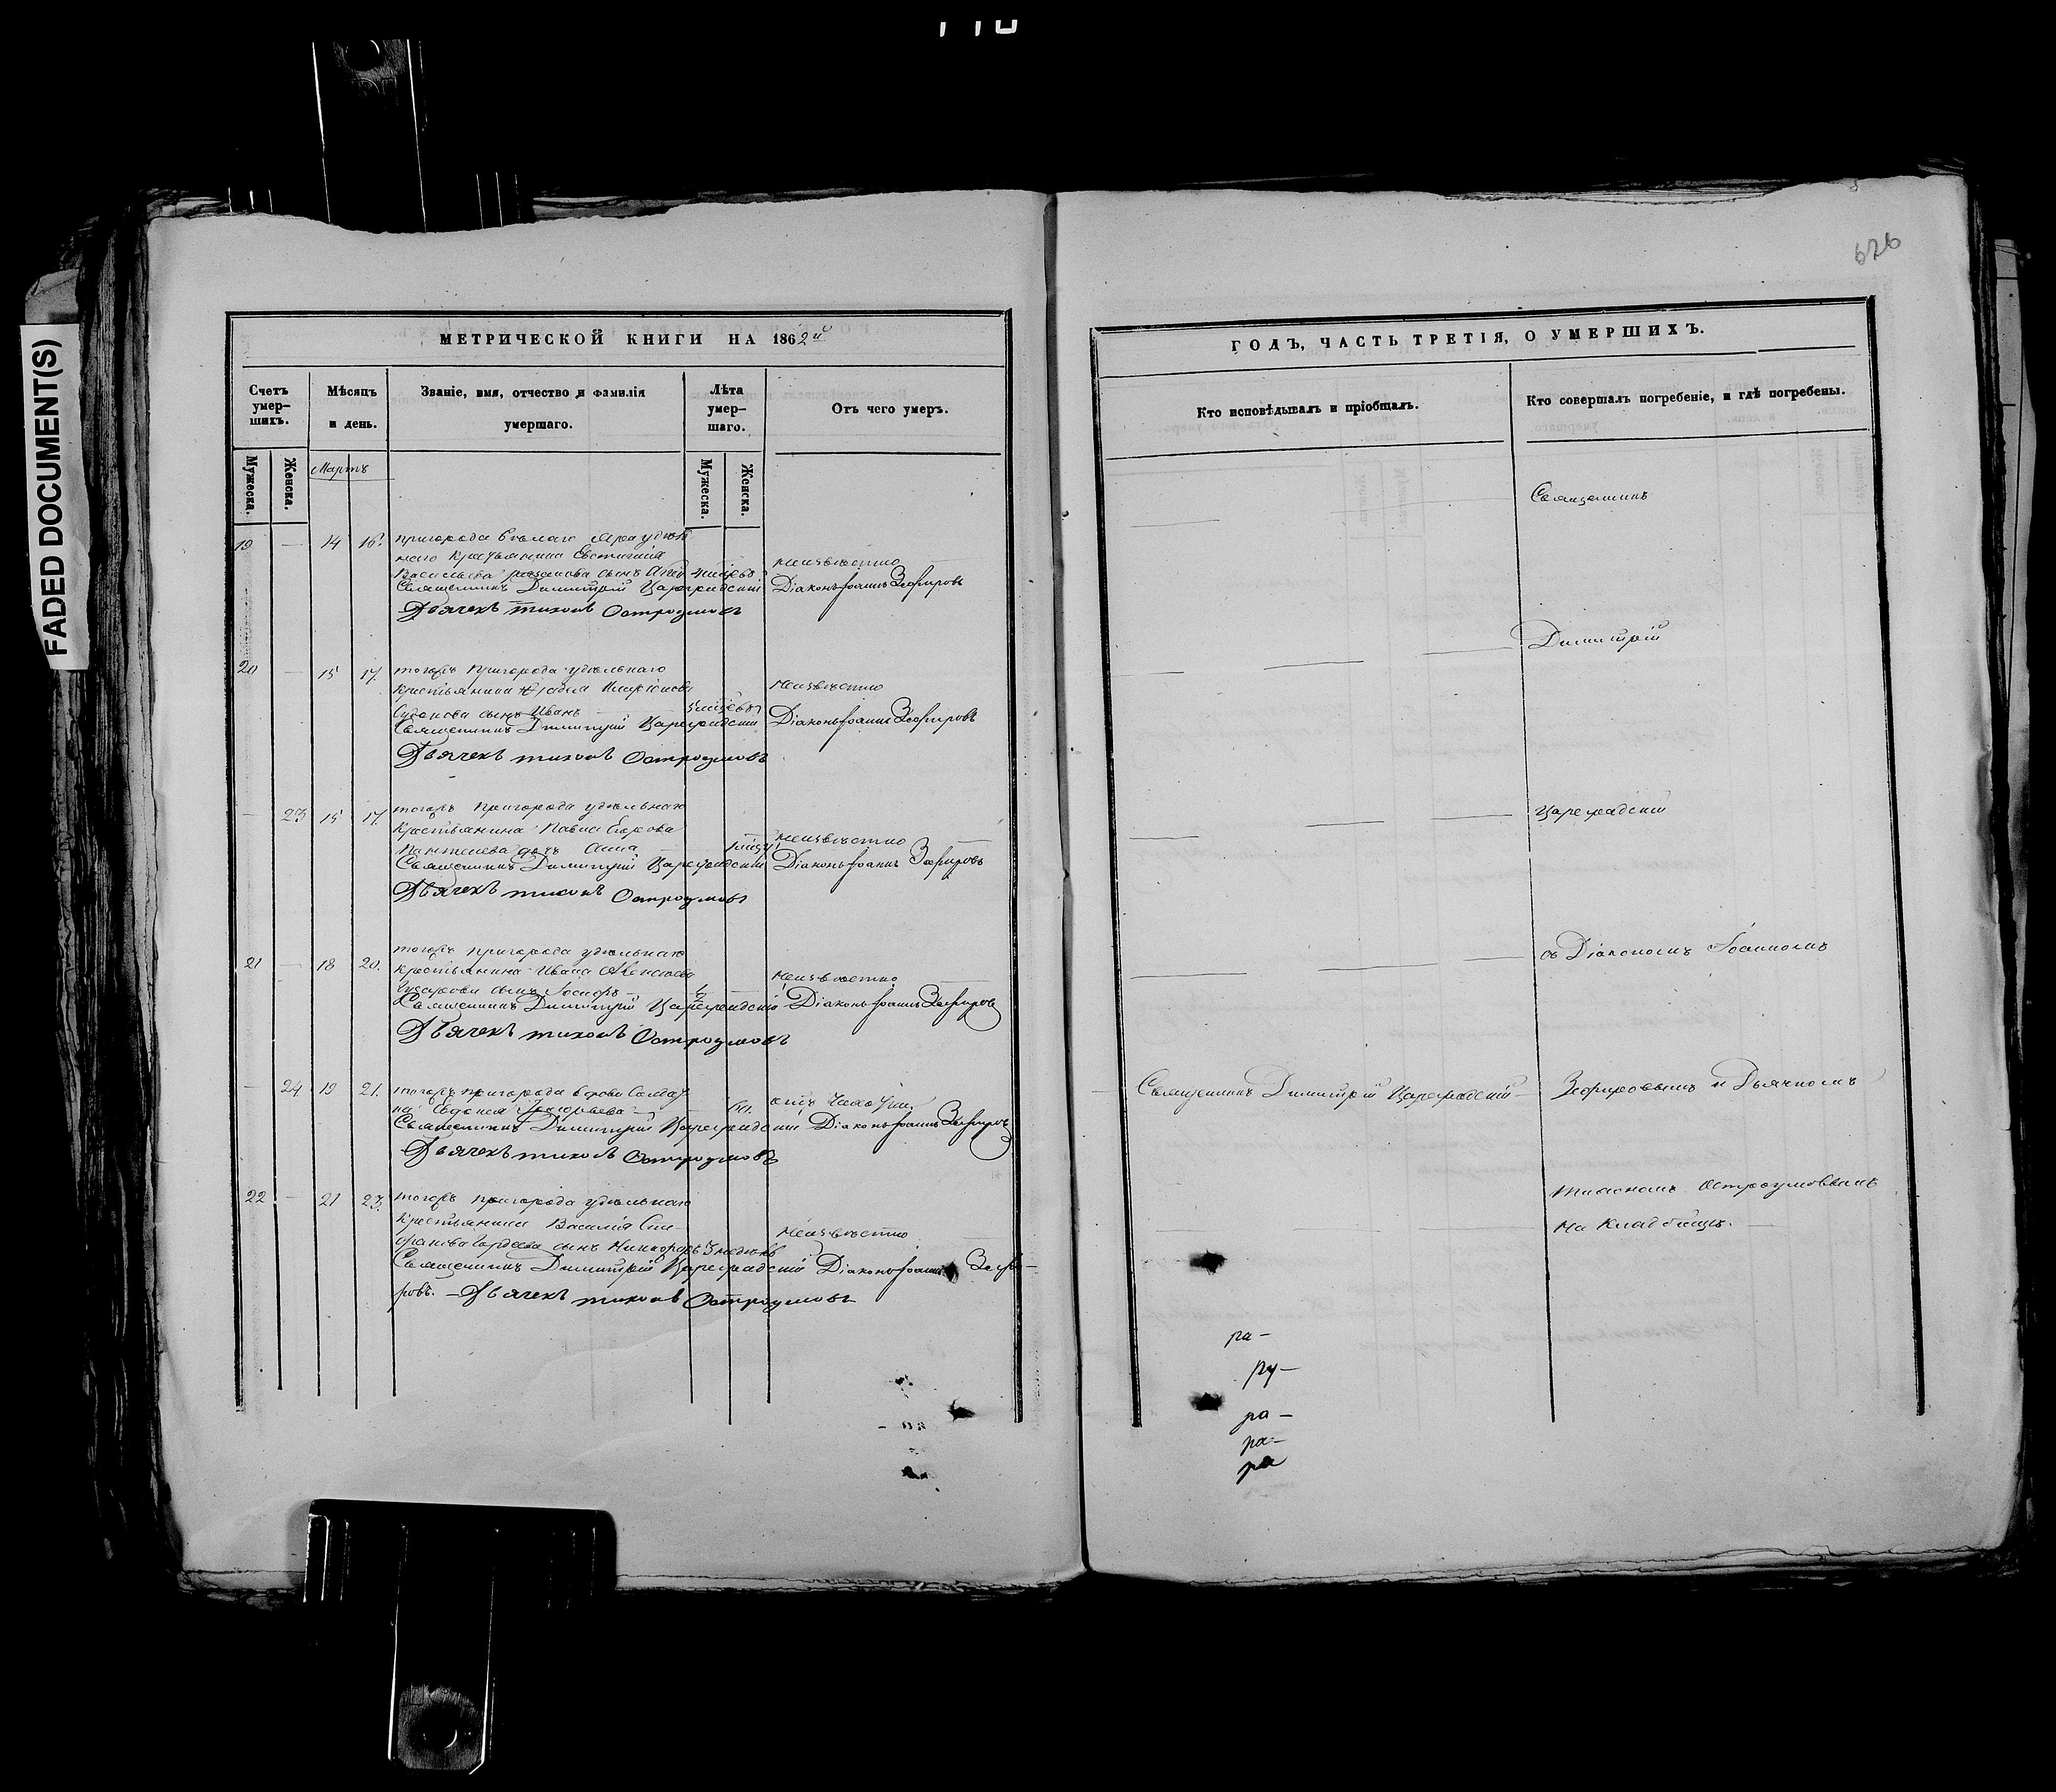 FADED DOCUMENT(S)
626
МЕТРИЧЕСКОЙ КНИГИ НА 1862й
Счетъ умер-
шихъ.
Мѣсяцъ
и день.
Званіе, имя, отчество и фамилія
умершаго.
Лѣта
умер-
шаго.
Отъ чего умеръ.
Мужеска.
Женска.
Мартъ
Мужеска.
Женска.
19 — 14 16. пригорода Бѣлаго Яра удѣль
наго крестьянина Евстигнія
Васильева сынъ неизвѣстно
Священникъ Димитрій Цареградскій Діаконъ Іоаннъ Зефировъ
Дьячекъ Тихонъ Остроумовъ
20 — 15 17. тогожъ пригорода удѣльнаго
крестьянина неизвѣстно
сынъ Иванъ
Священникъ Димитрій Цареградскій Діаконъ Іоаннъ Зефировъ
Дьячекъ Тихонъ Остроумовъ
— 23 15 17. тогожъ пригорода удѣльнаго
крестьянина Павла Егорова
дочь Анна неизвѣстно
Священникъ Димитрій Цареградскій Діаконъ Іоаннъ Зефировъ
Дьячекъ Тихонъ Остроумовъ
21 — 18 20. тогожъ пригорода удѣльнаго
крестьянина Ивана Алексѣева
сынъ Іосифъ неизвѣстно
Священникъ Димитрій Цареградскій Діаконъ Іоаннъ Зефировъ
Дьячекъ Тихонъ Остроумовъ
— 24 19 21. тогожъ пригорода вдова Солдат
ка Григорьева — отъ чахотки.
Священникъ Димитрій Цареградскій Діаконъ Іоаннъ Зефировъ
Дьячекъ Тихонъ Остроумовъ
22 — 21 23. тогожъ пригорода удѣльнаго
крестьянина Василія Сте-
фанова Гордеева сынъ Никифоръ 3 недѣль неизвѣстно
Священникъ Димитрій Цареградскій Діаконъ Іоаннъ Зефи-
ровъ. — Дьячекъ Тихонъ Остроумовъ
ГОДЪ, ЧАСТЬ ТРЕТІЯ, О УМЕРШИХЪ.
Кто исповѣдывалъ и пріобщалъ.
Кто совершалъ погребеніе, и гдѣ погребены.
Священникъ
Димитрій
Цареградскій
съ Діакономъ Іоанномъ
Священникъ Димитрій Цареградскій — Зефировымъ и Дьячкомъ
Тихономъ Остроумовымъ
На кладбищѣ.
ра-
ру-
ра-
ра-
ра